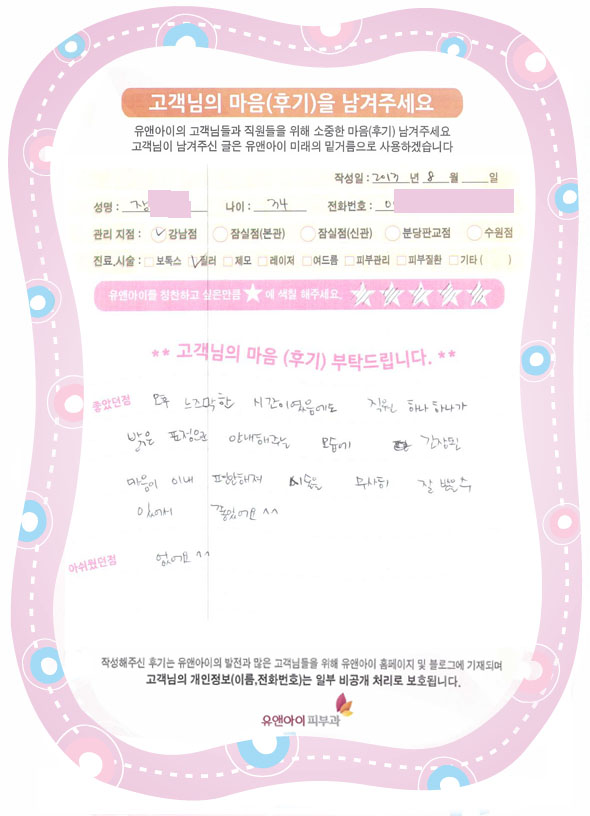 고객님의 마음(후기)을 남겨주세요
유앤아이의 고객님들과 직원들을 위해 소중한 마음(후기) 남겨주세요
고객님이 남겨주신 글은 유앤아이 미래의 밑거름으로 사용하겠습니다
작성일 : 2013 년 8 월 일
성명 : 장 나이 : 34 전화번호 : 01
관리 지점 : 강남점 잠실점(본관) 잠실점(신관) 분당판교점 수원점
진료,시술 : 보톡스 필러 제모 레이저 여드름 피부관리 피부질환 기타 ( )
유앤아이를 칭찬하고 싶은만큼 ★ 에 색칠 해주세요. ★★★★★
** 고객님의 마음 (후기) 부탁드립니다. **
좋았던점 느즈막한 시간이었음에도 직원 하나하나가
밝은 표정으로 안내해주는 모습에 긴장된
마음이 이내 편안해져 시술을 무사히 잘 받을 수
있어서 좋았어요 ^^
아쉬웠던점 없어요 ^^
작성해주신 후기는 유앤아이의 발전과 많은 고객님들을 위해 유앤아이 홈페이지 및 블로그에 기재되며
고객님의 개인정보(이름,전화번호)는 일부 비공개 처리로 보호됩니다.
유앤아이피부과